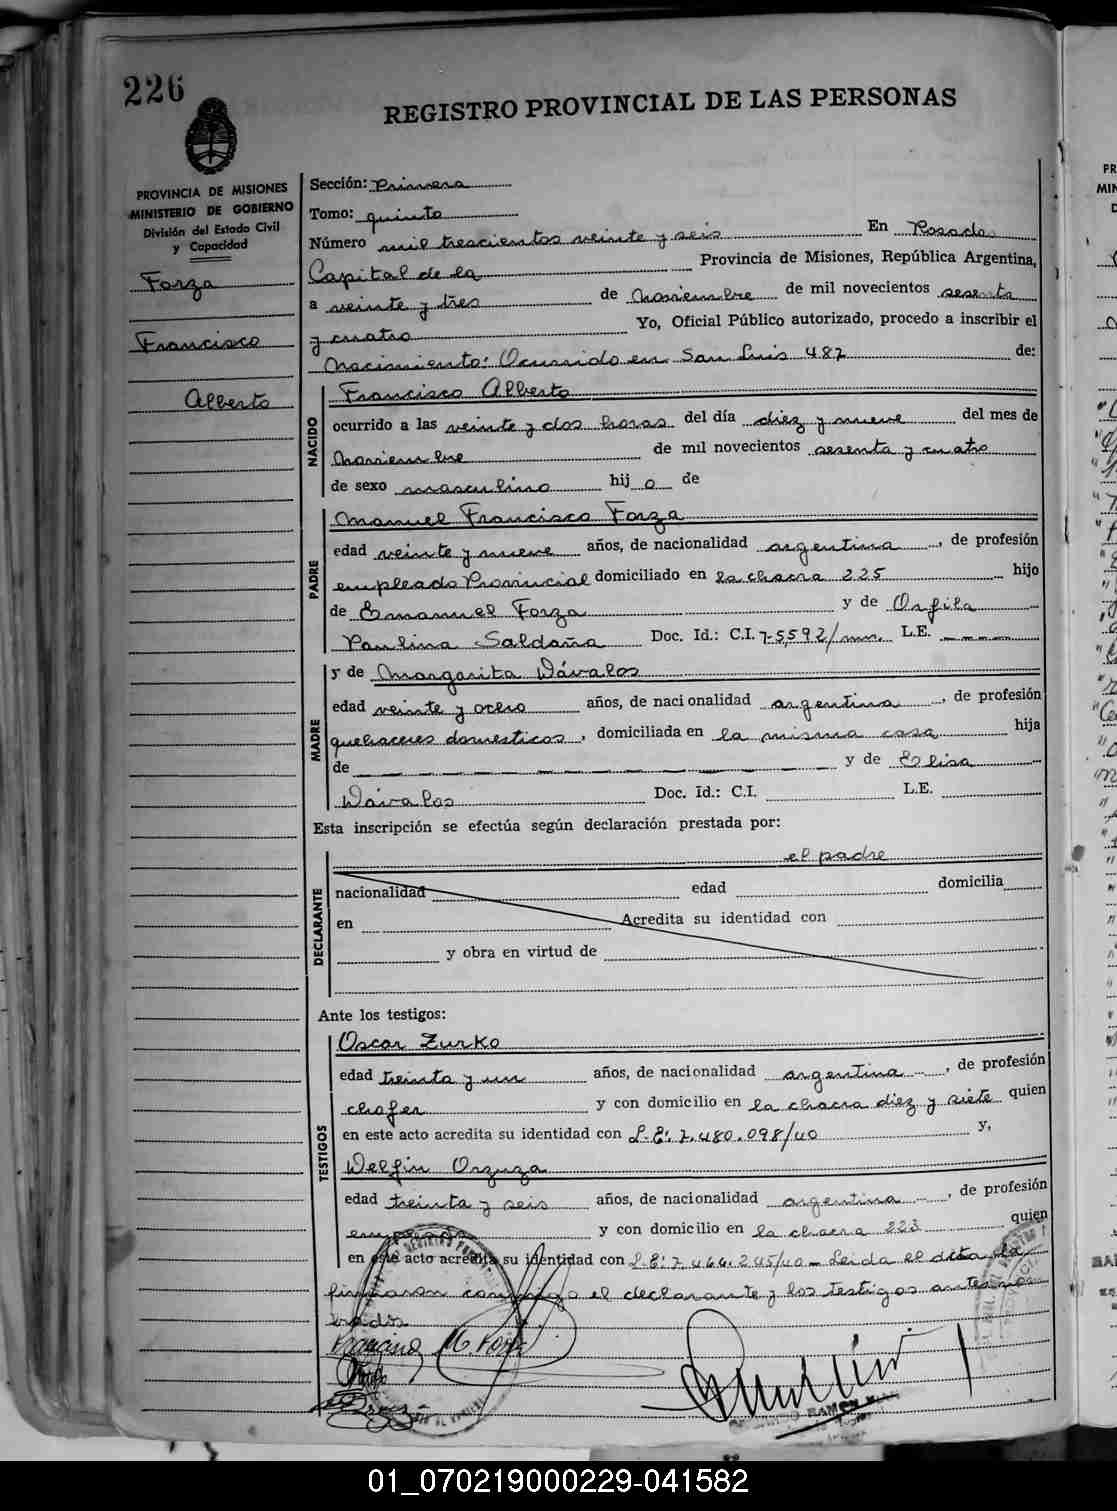 226
REGISTRO PROVINCIAL DE LAS PERSONAS
PROVINCIA DE MISIONES
MINISTERIO DE GOBIERNO
División del Estado Civil
y Capacidad
Forza
Francisco
Alberto
Sección: Primera
Tomo: quinto
Número mil trescientos veinte y seis En Posadas
Capital de la Provincia de Misiones, República Argentina,
a veinte y tres de noviembre de mil novecientos sesenta
y cuatro Yo, Oficial Público autorizado, procedo a inscribir el
nacimiento: Ocurrido en San Luis 487 de:
NACIDO
Francisco Alberto
ocurrido a las veinte y dos horas del día diez y nueve del mes de
noviembre de mil novecientos sesenta y cuatro
de sexo masculino hijo de
PADRE
Manuel Francisco Forza
edad veinte y nueve años, de nacionalidad argentina, de profesión
empleado Provincial domiciliado en la chacra 225 hijo
de Emanuel Forza y de Orfila
Paulina Saldaña Doc. Id.: C.I. 75,592/mn. L.E.
MADRE
y de Margarita Dávalos
edad veinte y ocho años, de nacionalidad argentina, de profesión
quehaceres domesticos, domiciliada en la misma casa hija
de y de Elisa
Dávalos Doc. Id.: C.I. L.E.
Esta inscripción se efectúa según declaración prestada por:
el padre
DECLARANTE
nacionalidad edad domicilia
en Acredita su identidad con
y obra en virtud de
Ante los testigos:
TESTIGOS
Oscar Zurko
edad treinta y un años, de nacionalidad argentina, de profesión
chofer y con domicilio en la chacra diez y siete quien
en este acto acredita su identidad con L.E: 7.480.098/40 y,
Delfin Orzuza
edad treinta y seis años, de nacionalidad argentina, de profesión
empleado y con domicilio en la chacra 223 quien
en este acto acredita su identidad con L.E: 7.466.245/40 - Leida el acta la
firmaron conmigo el declarante y los testigos antes nom
brados
Francisco M. Forza
01_070219000229-041582